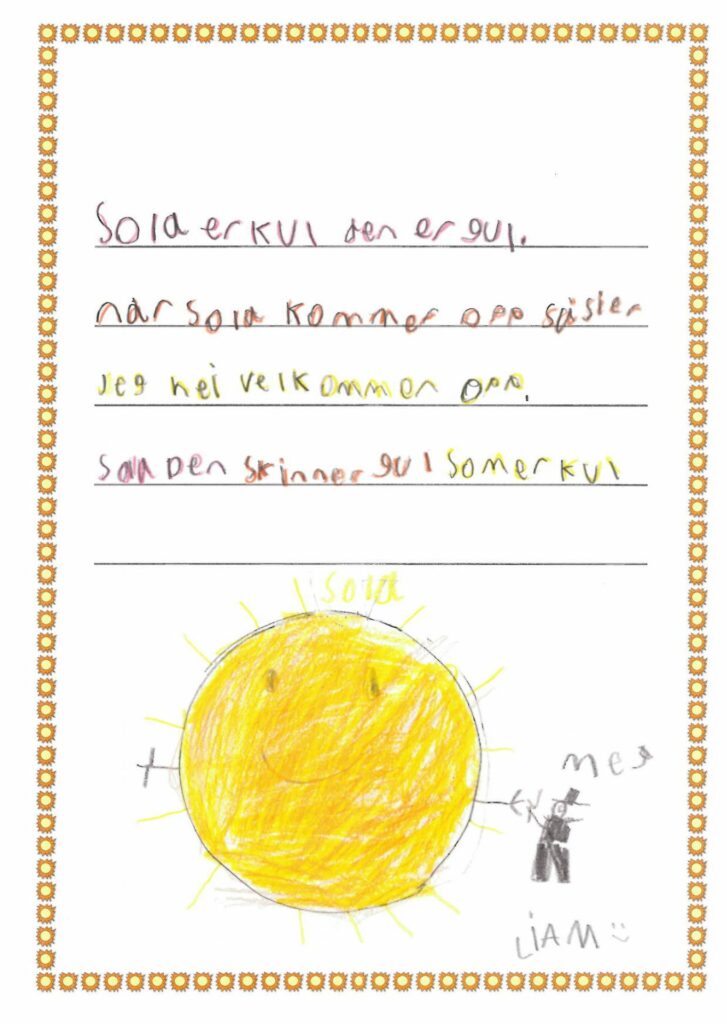 Sola er kul den er gul.
når sola kommer opp
jeg hei velkommen opp.
Den skinner gul som er kul
sola
meg
LiAM :)